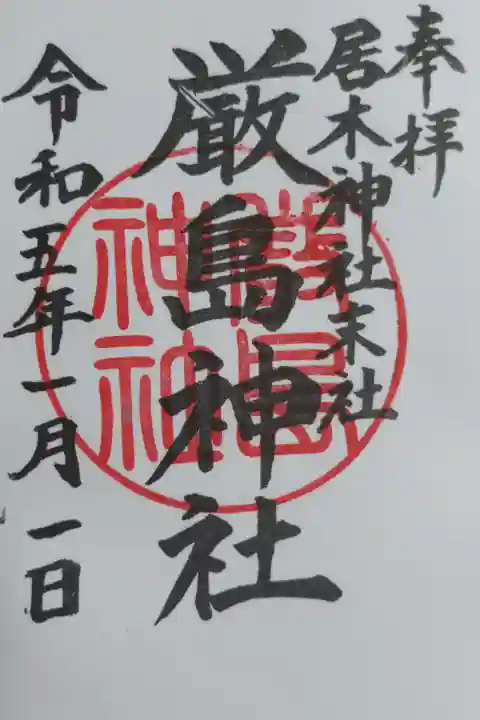 奉拝
居木神社末社
厳島神社
令和五年一月一日
厳島
神社